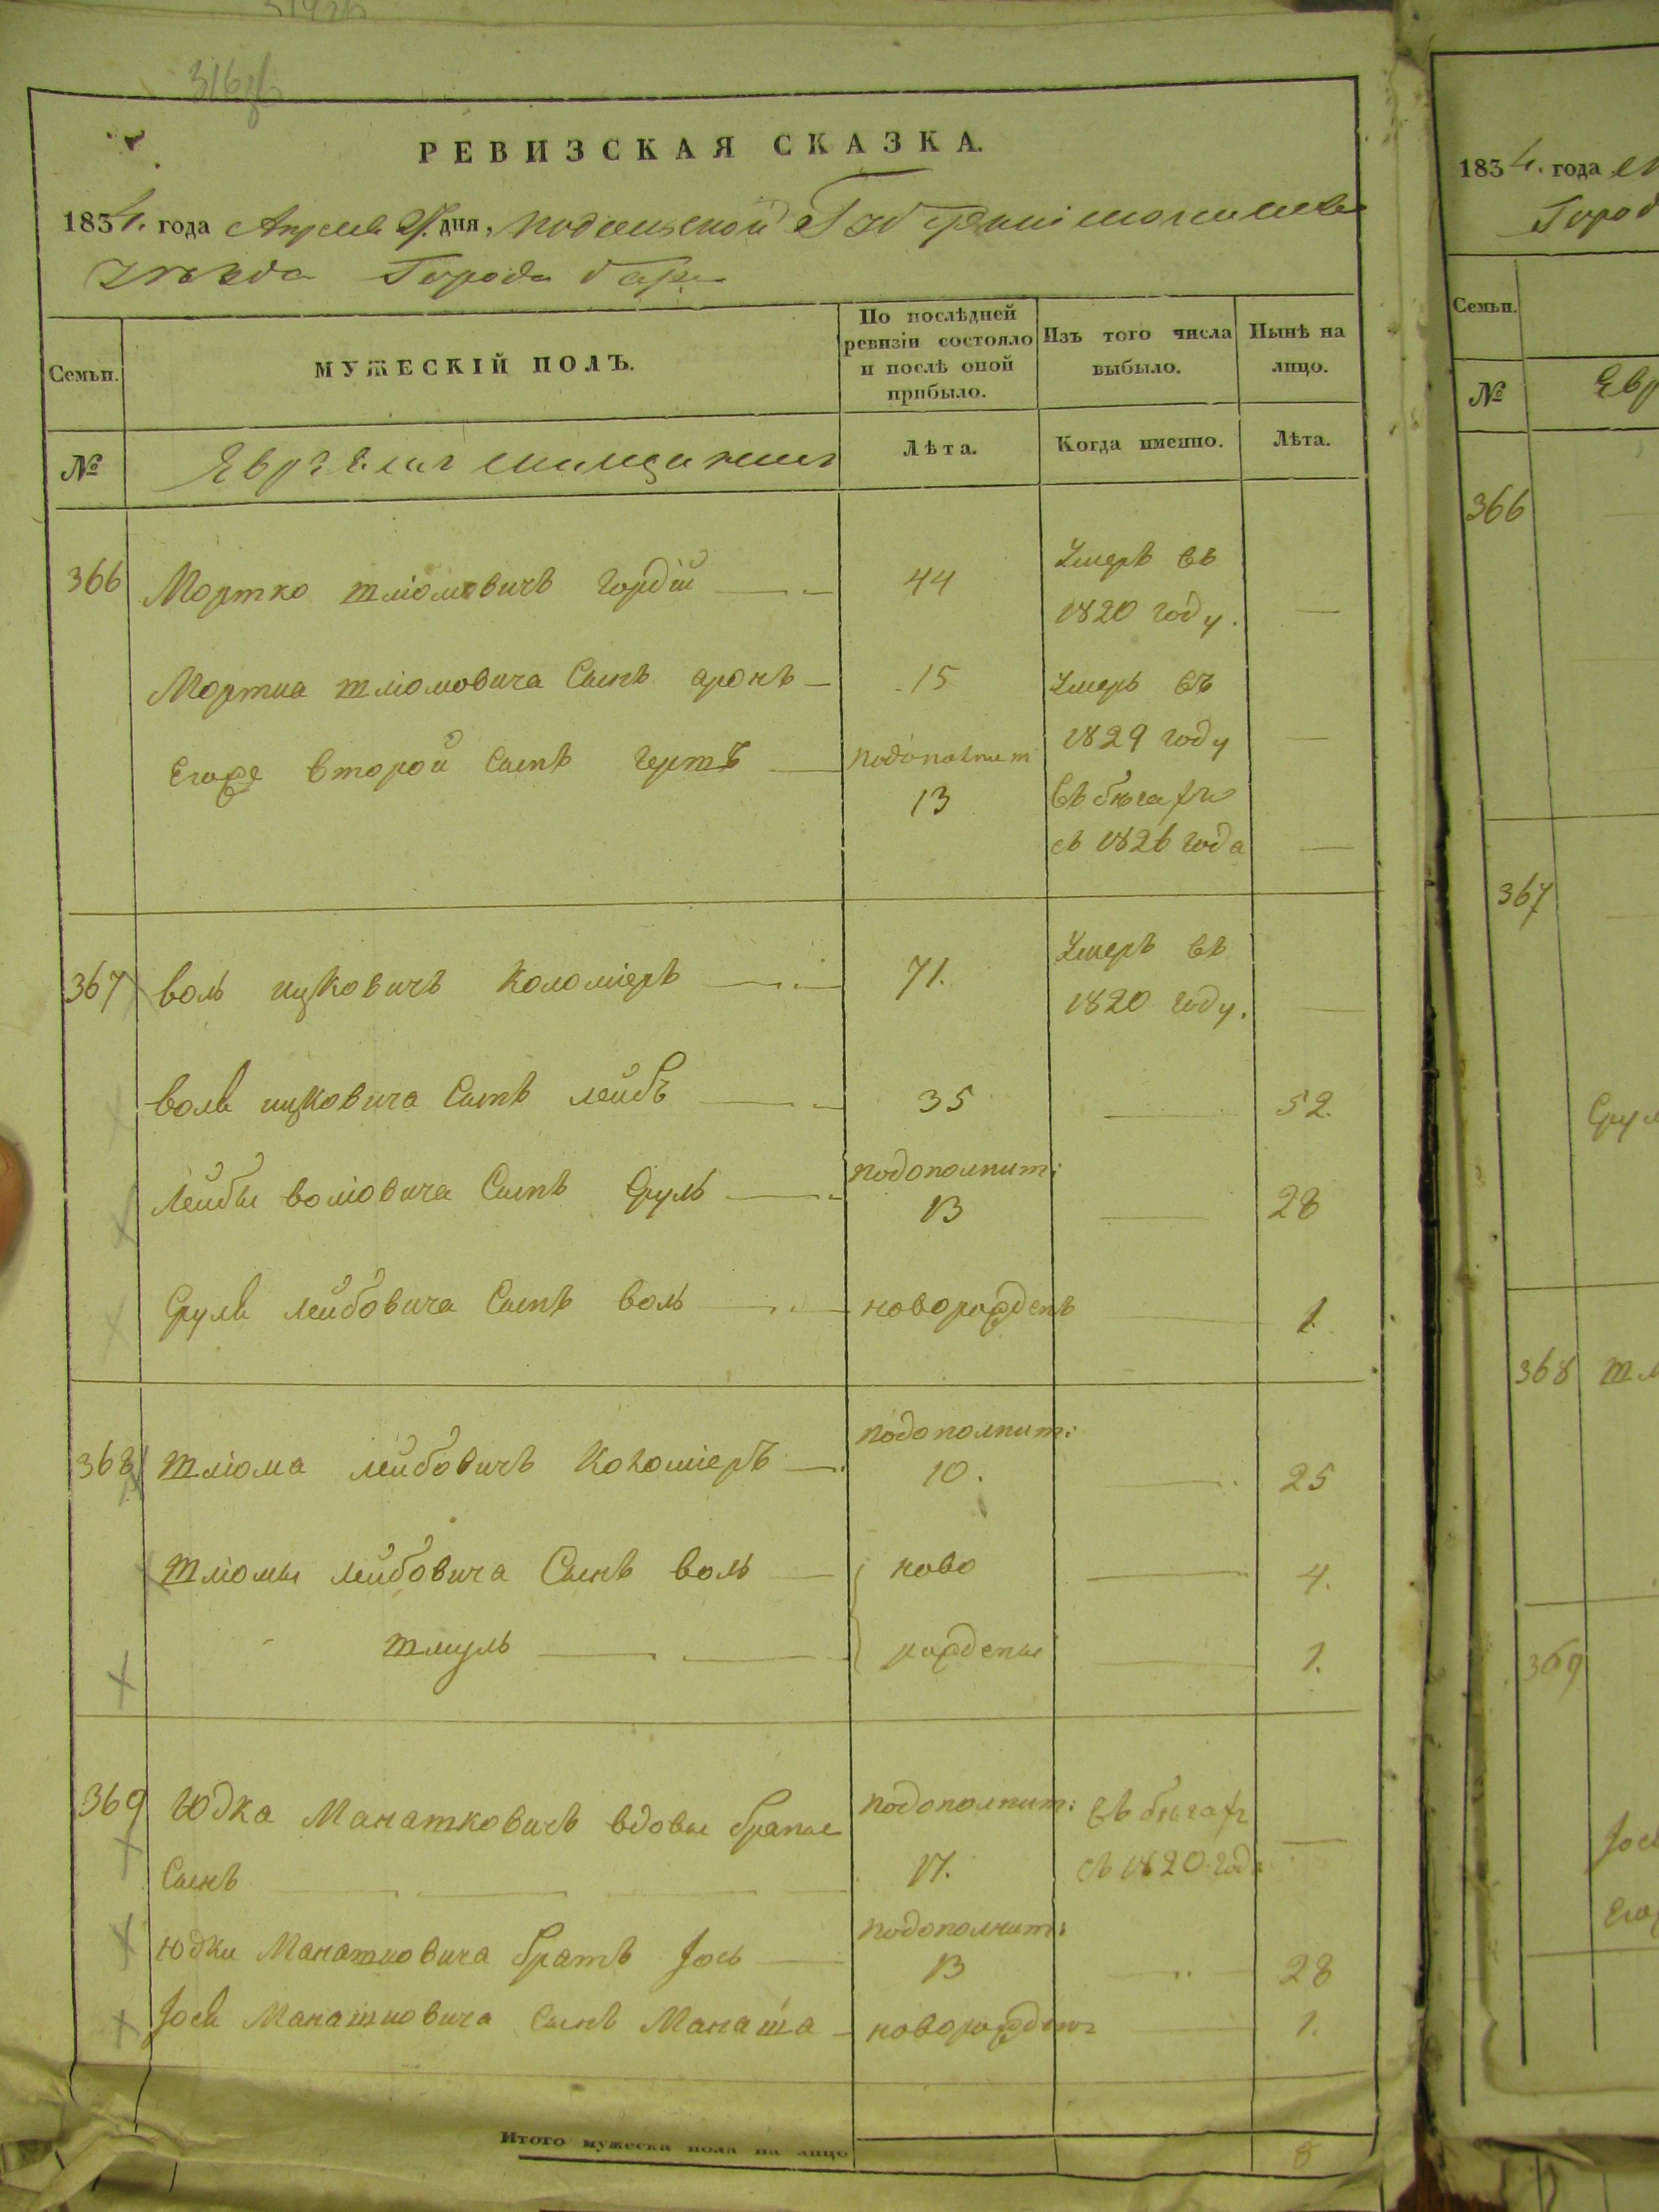 РЕВИЗСКАЯ СКАЗКА.
1834. года Апреля дня, Подольской Губерніи Могилевска
Уѣзда Города Бара
Семьи.
МУЖЕСКІЙ ПОЛЪ.
По послѣдней ревизіи состояло и послѣ оной прибыло.
Изъ того числа выбыло.
Нынѣ на лицо.
№
Евреями мещанами
Лѣта.
Когда именно.
Лѣта.
366 Мортко Шліомовичъ Гордій 44 Умеръ въ
1820 году.
Мортка Шліомовича Сынъ аронъ 15 Умеръ въ
1829 году
Егоже второй Сынъ Гершъ подополнит
13 въ бѣгахъ
съ 1826 года
367 воль ицковичъ Коломіеръ 71. Умеръ въ
1820 году.
воля ицковича Сынъ лейбъ 35 52.
Лейбы воліовича Сынъ Сруль подополнит:
13 28
Сруля лейбовича Сынъ воль новорожденъ 1.
368 Шліома лейбовичъ Коломіеръ подополнит:
10. 25
Шліомы лейбовича Сынъ воль ново 4.
Шмуль рождены 1.
369 Юдка Манашковичъ вдовы браны подополнит: въ бѣгахъ
Сынъ 17. съ 1820 года
Юдки Манашковича братъ Іось подополнит:
13 28
Іося Манашковича Сынъ Манаша новорожденъ 1.
Итого мужеска пола на лицо 8
1834. года
Город
Семьи.
№ Евр
366
367
368
369